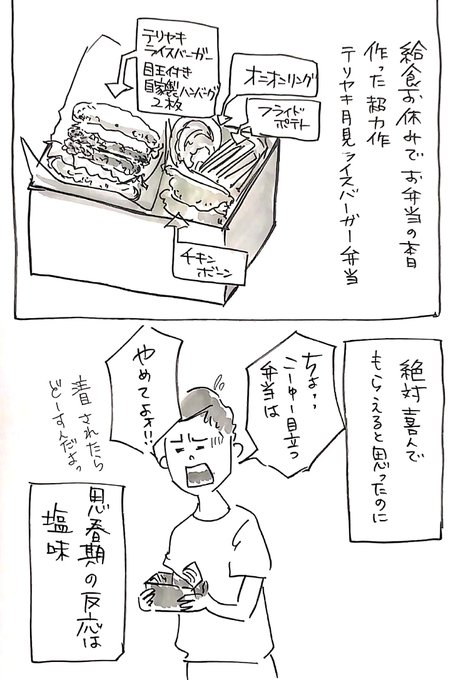 給食お休みで お弁当の本日
作った超力作
テリヤキ月見ライスバーガー弁当
オニオンリング
フライド
ポテト
テリヤキ
ライスバーガー
目玉付き
自家製ハンバーグ
2枚
チキン
ボーン
絶対喜んで
もらえると思ったのに
ちょっ
こーゆー目立つ
弁当は
やめてよォ!!
されたら
どーすんだよっ
思春期の反応は
塩味